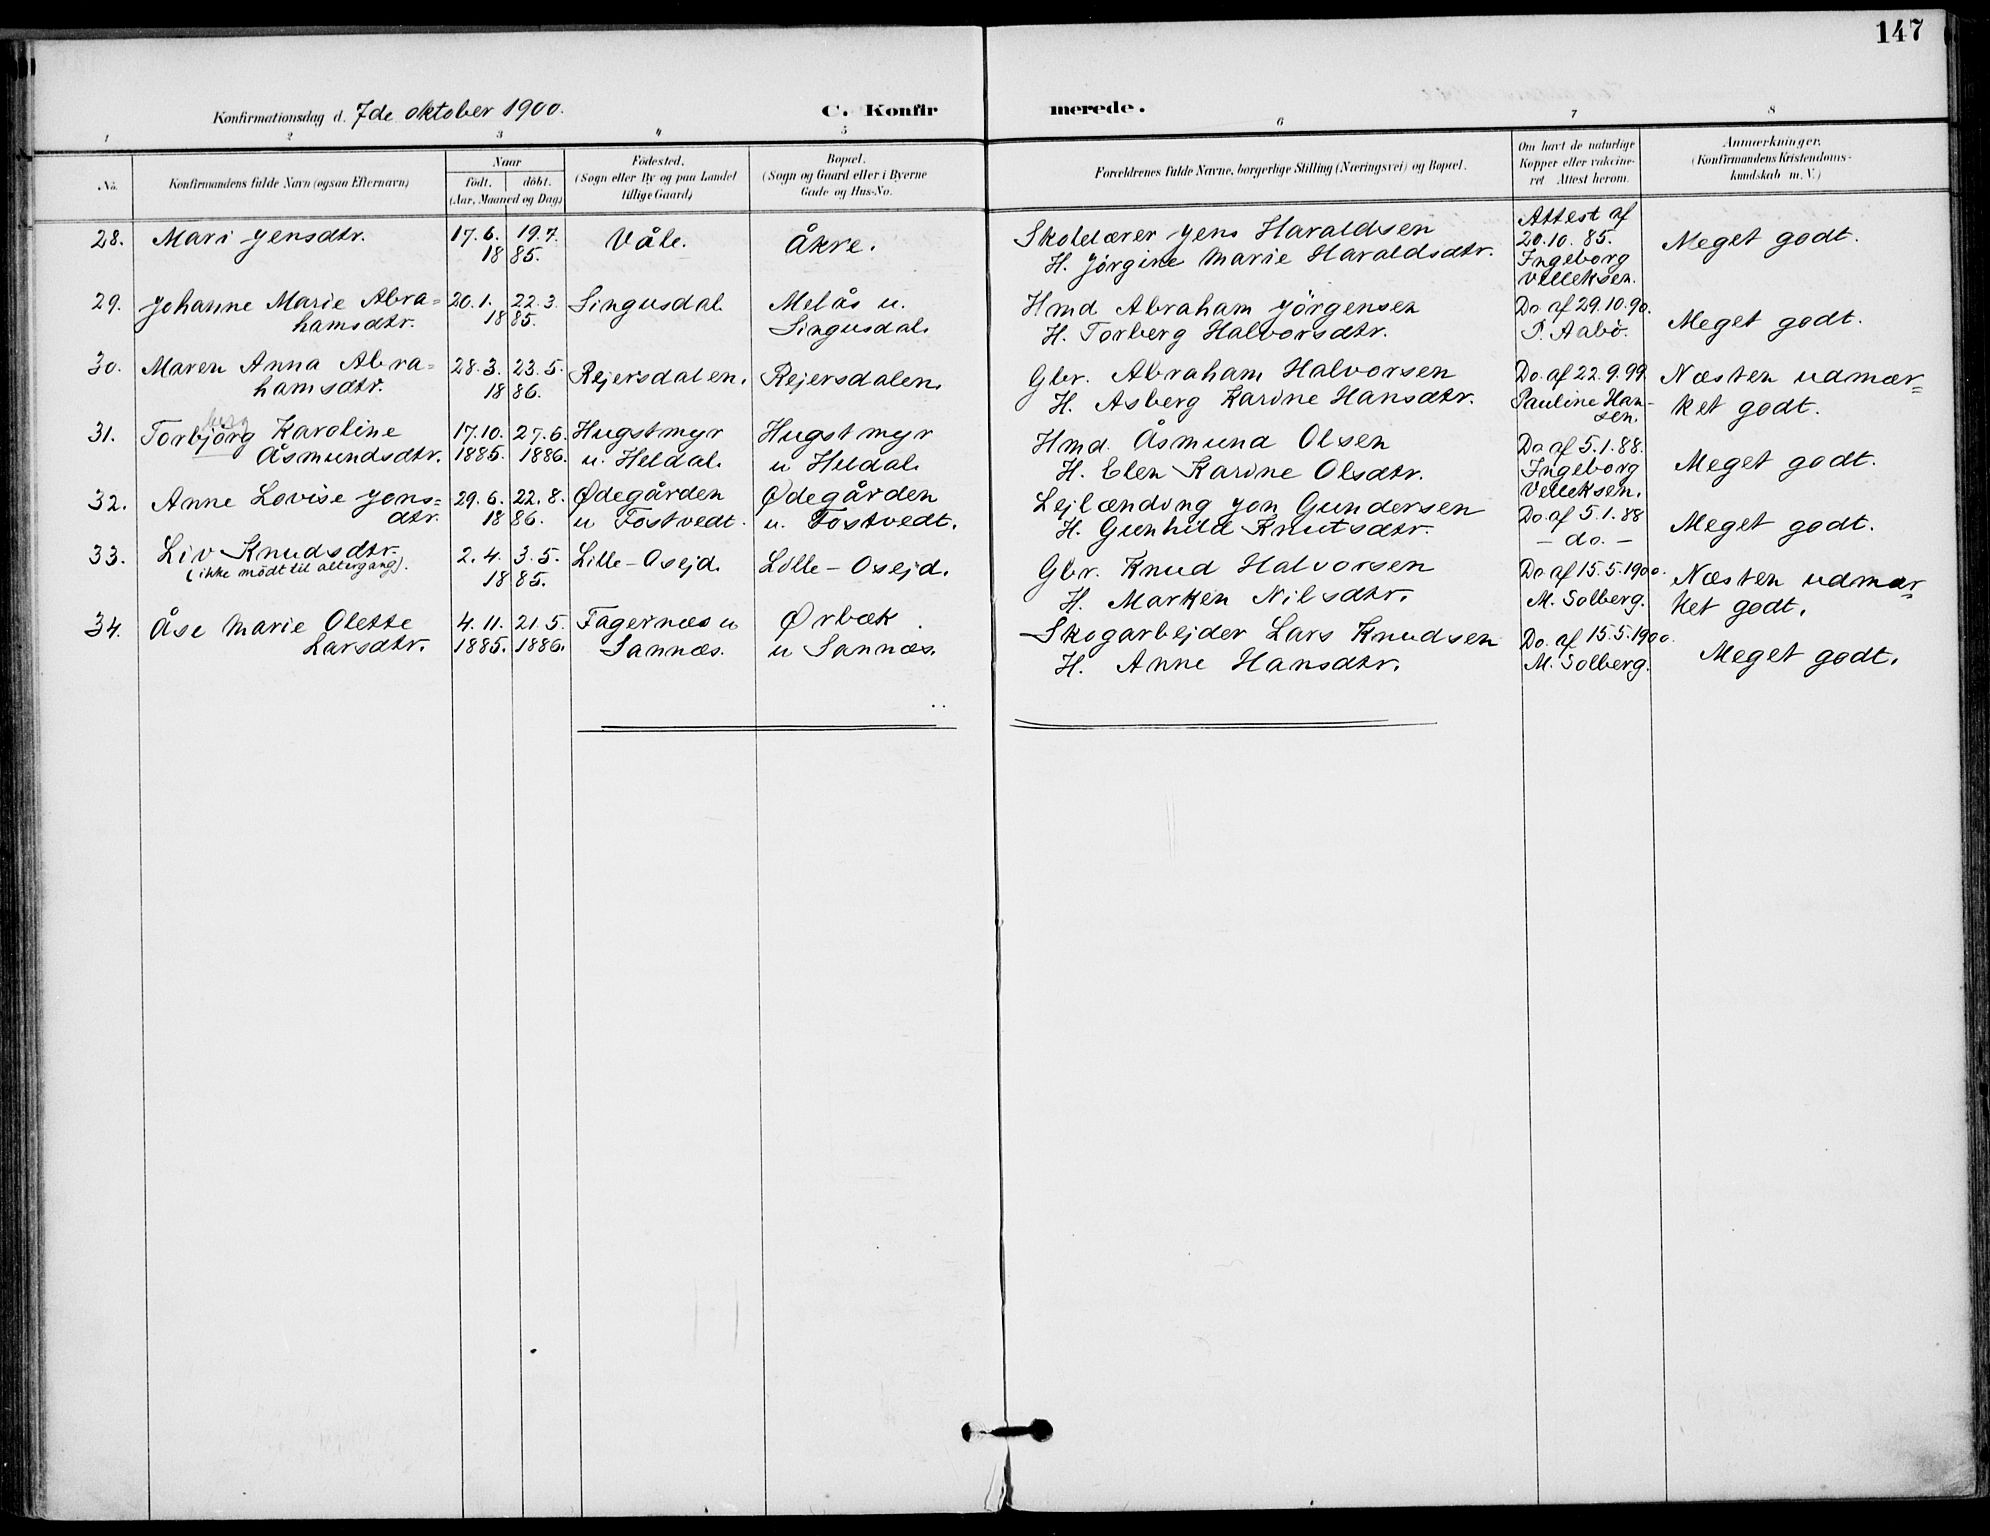 147
Konfirmationsdag d. 7de oktober 1900. C. Konfir merede.
1 2 3 4 5 6 7 8
No.
Konfirmandens fulde Navn (ogsaa Efternavn)
Naar
født. døbt.
(Aar, Maaned og Dag)
Fødested.
(Sogn eller By og paa Landet
tillige Gaard)
Bopæl.
(Sogn og Gaard eller i Byerne
Gade og Hus-No.
Forældrenes fulde Navne, borgerlige Stilling (Næringsvei) og Bopæl.
Om havt de naturlige
Kopper eller vakcine-
ret Attest herom.
Anmærkninger.
(Konfirmandens Kristendoms-
kundskab m. V.)
28. Mari Jensdtr. 17.6. 19.7. 1885. Våle. Åkre.
Skolelærer Jens Haraldsen
H. Jörgine Marie Haraldsdtr.
Attest af
20.10.85.
Ingeborg
Velleksen.
Meget godt.
29. Johanne Marie Abra=
hamsdtr.
20.1. 22.3.
1885.
Singusdal.
Melås u.
Singusdal.
Hmd Abraham Jörgensen
H. Torberg Halvorsdtr.
Do af 29.10.90.
P. Aabö.
Meget godt.
30. Maren Anna Abra=
hamsdtr.
28.3. 23.5.
1886.
Rejersdalen. Rejersdalen.
Gbr. Abraham Halvorsen
H. Asberg Karine Hansdtr.
Do. af 22.9.99
Pauline Han-
sen.
Næsten udmær=
ket godt.
berg
31. Torbjörg Karoline
Åsmundsdtr.
17.10. 27.6.
1885. 1886.
Hugstmyr
u. Heldal.
Hugstmyr
u Heldal.
Hmd. Åsmund Olsen
H. Elen Karine Olsdtr.
Do af 5.1.88.
Ingeborg
Velleksen.
Meget godt.
32. Anne Lovise Jons=
dtr.
29.6. 22.8.
1886.
Ødegården
u Fostvedt.
Ødegården
u. Fostvedt.
Lejlænding Jon Gundersen
H. Gunhild Knutsdtr.
Do af 5.1.88
- do. -
Meget godt.
33. Liv Knudsdtr.
(ikke mödt til altergang).
2.4. 3.5.
1885.
Lille-Osejd. Lille-Osejd.
Gbr. Knud Halvorsen
H. Marken Nilsdtr.
Do af 15.5.1900.
M. Solberg.
Næsten udmær=
ket godt.
34. Åse Marie Olette
Larsdtr.
4.11. 21.5.
1885. 1886.
Fagernæs u
Sannæs.
Ørbæk
u Sannæs.
Skogarbejder Lars Knudsen
H. Anne Hansdtr.
Do. af 15.5.1900.
M. Solberg.
Meget godt.